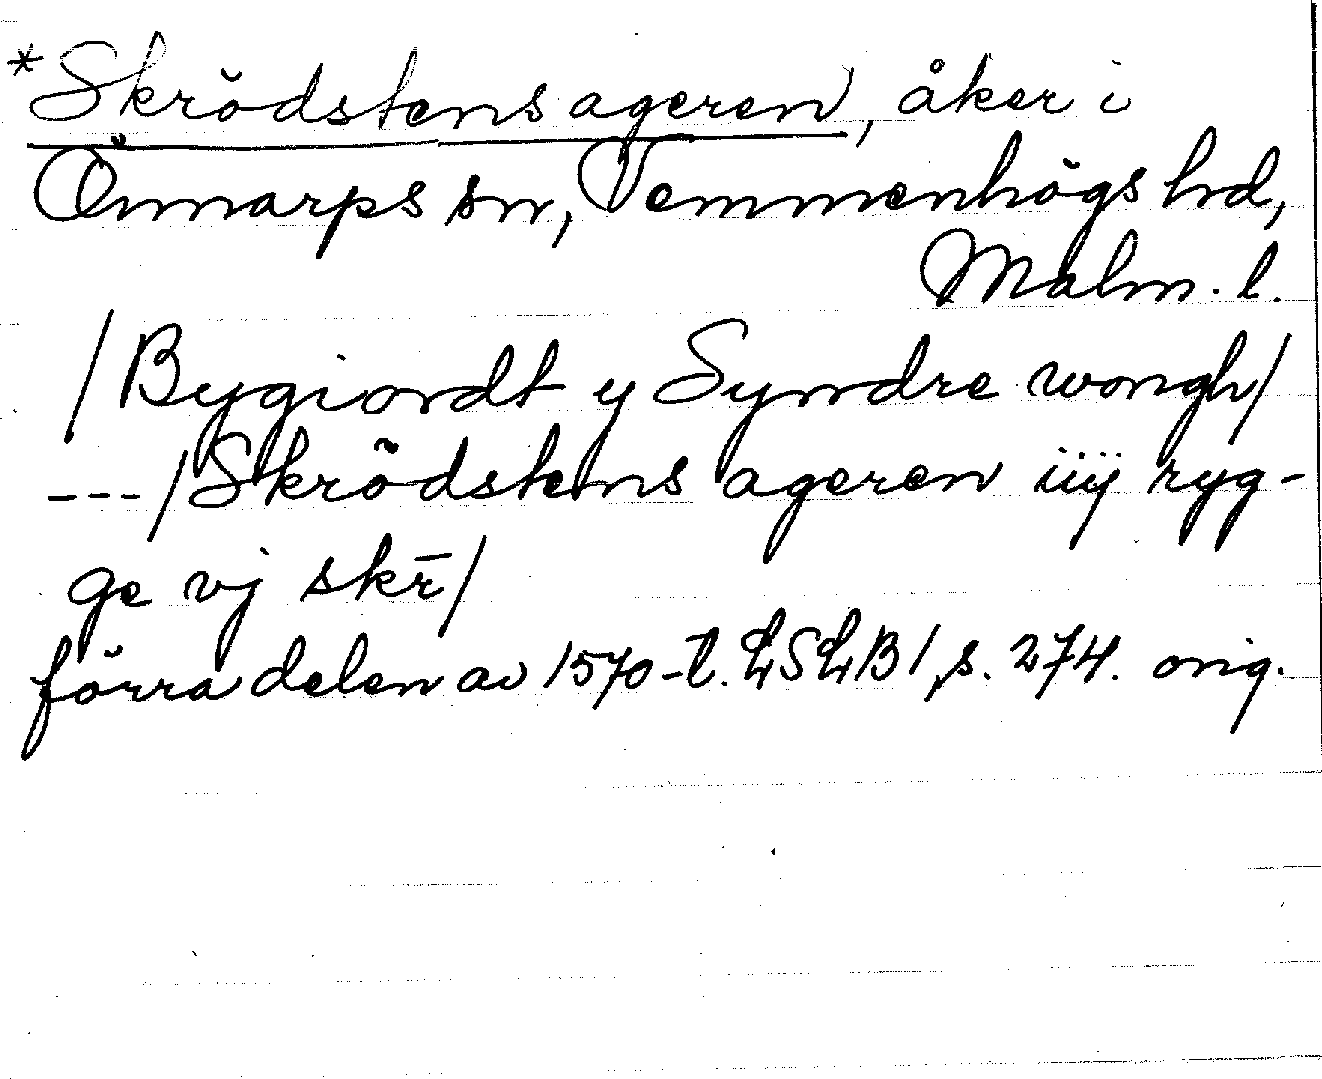 *Skrödstensageren, åker i
Önnarps sn, Vemmenhögs hd,
Malm. l.
/Bygiordt y Syndre wongh/
---/Skrödstens ageren iiij ryg-
ge vj skr̄/
förra delen av 1570-t. LSLB 1, s. 274. orig.